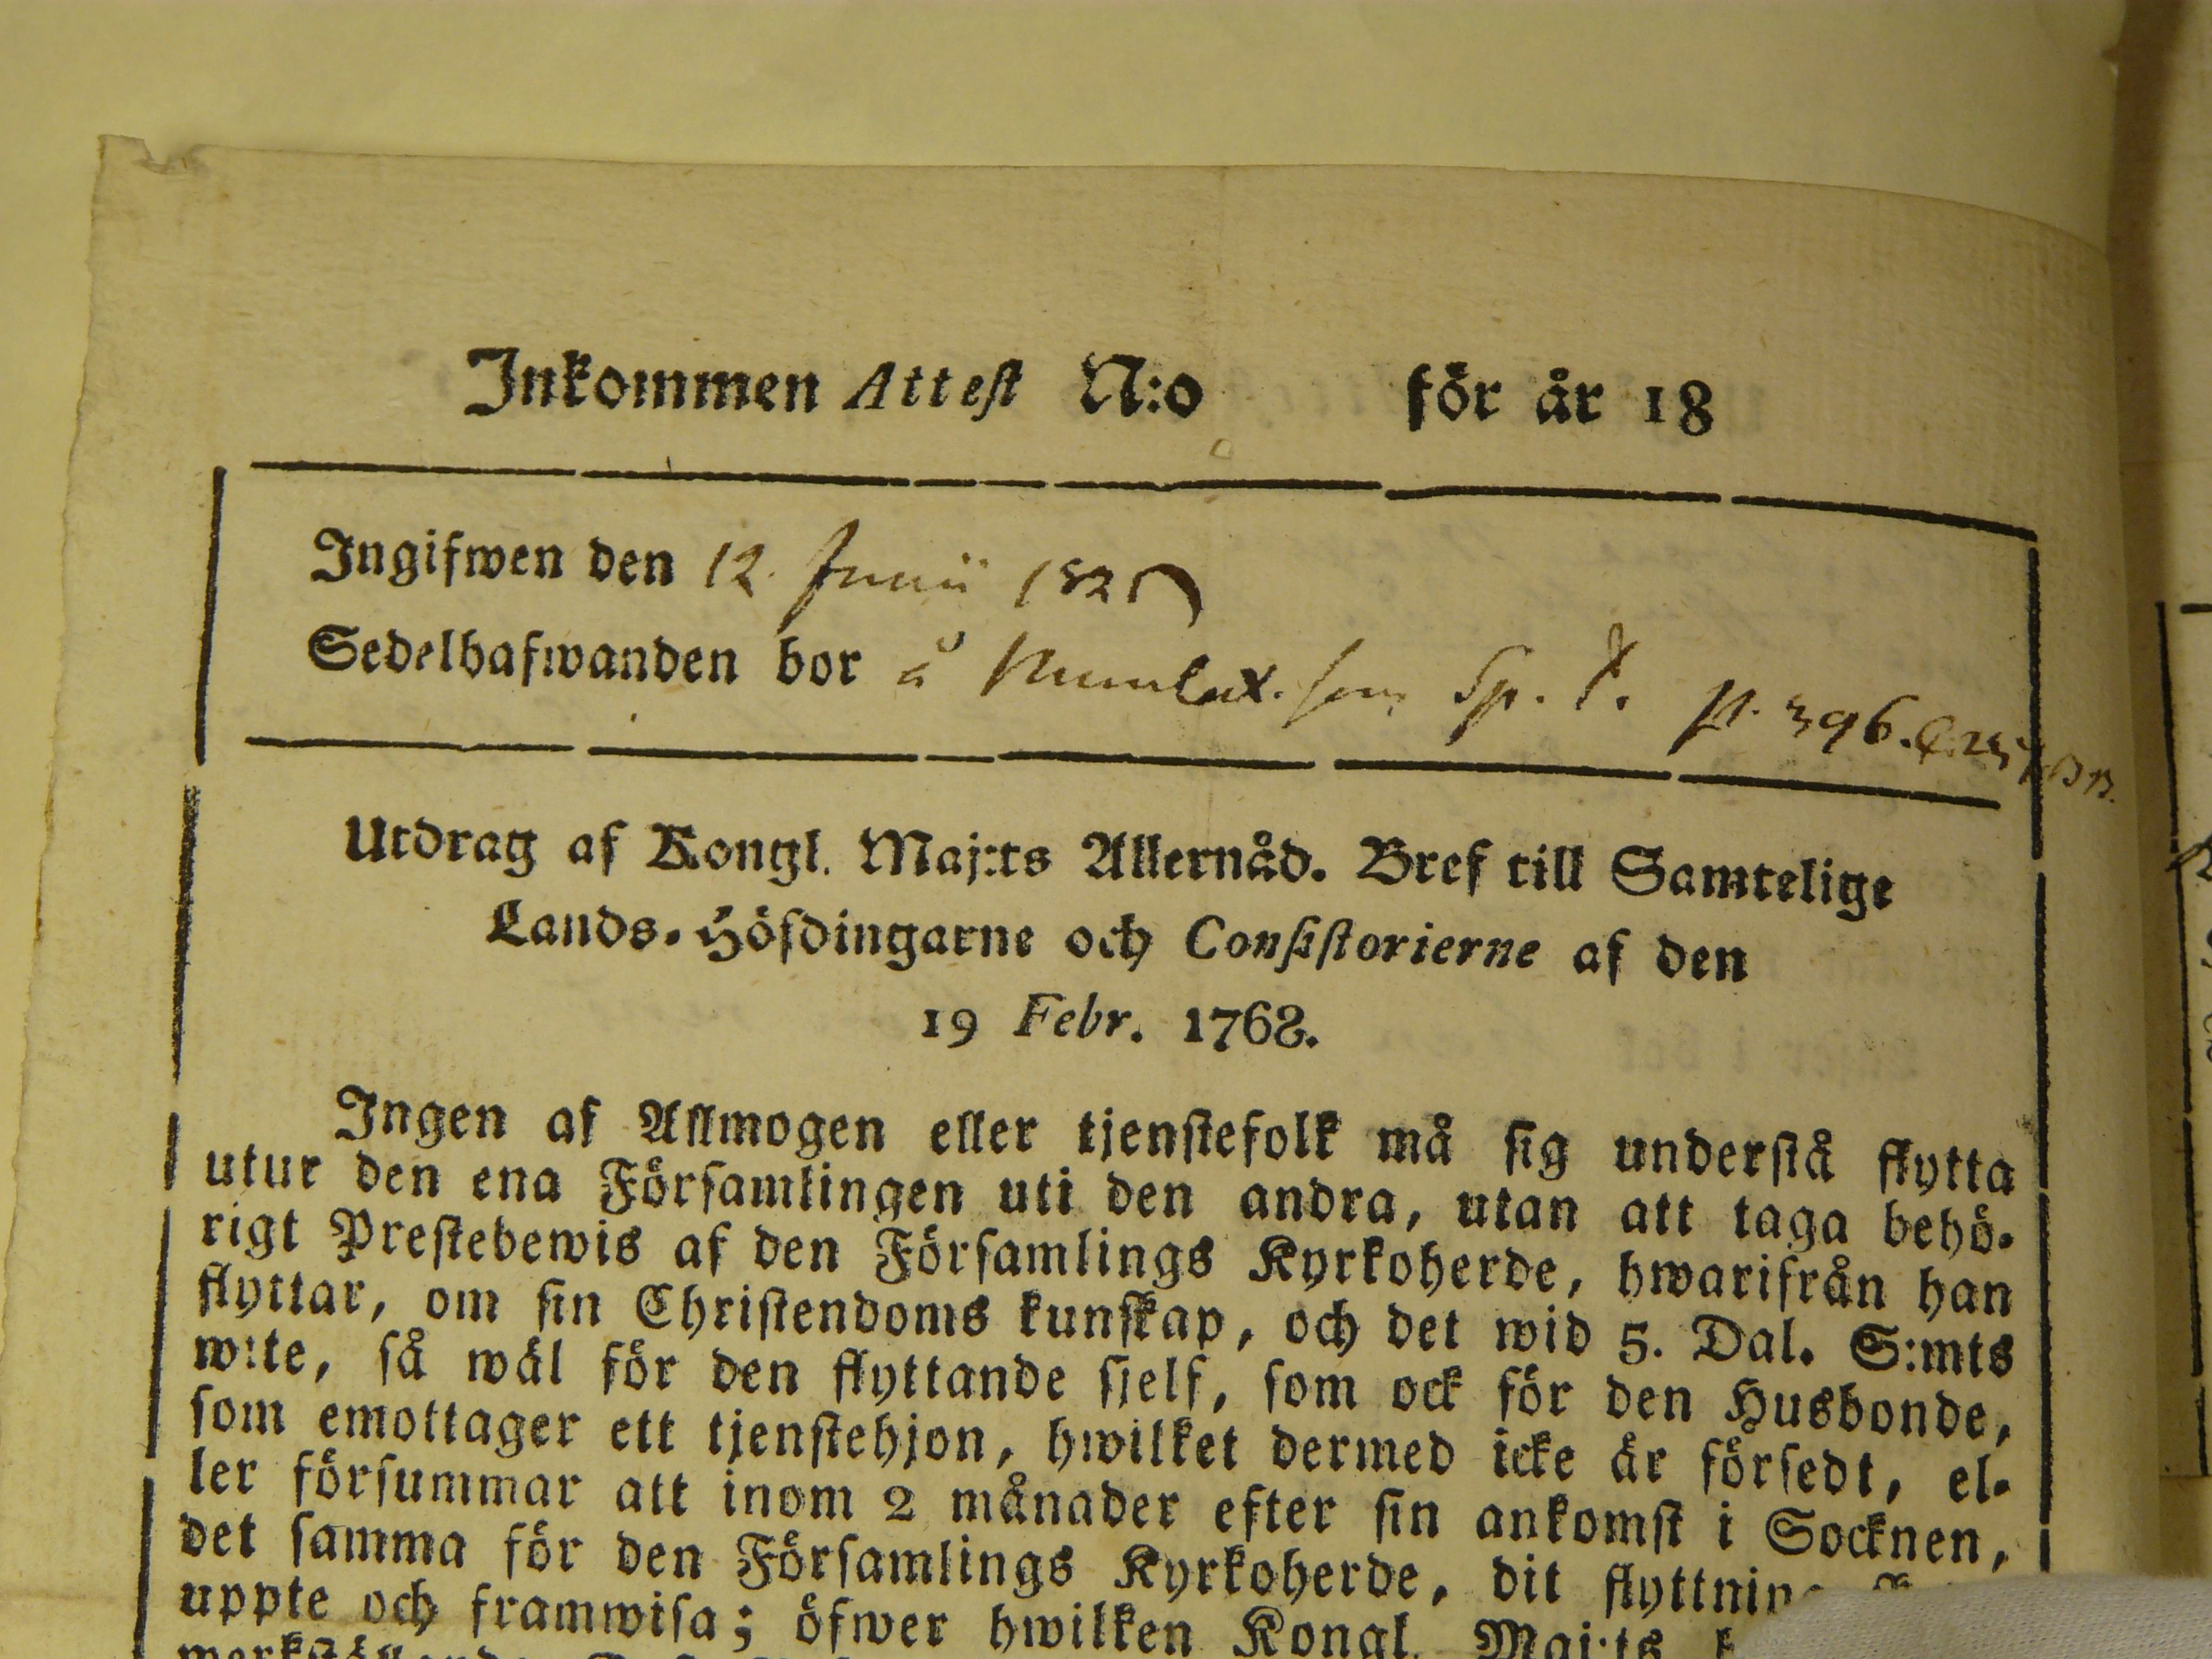 Inkommen Attest N:o för år 18
Ingifwen den 12. Junii 1825
Sedelhafwanden bor å Sp. p. 396.
Utdrag af Kongl. Maj:ts Allernåd. Bref till Samtelige
Lands-Höfdingarne och Consistorierne af den
19 Febr. 1768.
Ingen af Allmogen eller tjenstefolk må sig understå flytta
utur den ena Församlingen uti den andra, utan att taga behö-
rigt Prestebewis af den Församlings Kyrkoherde, hwarifrån han
flyttar, om sin Christendoms kunskap, och det wid 5. Dal. S:mts
wite, så wäl för den flyttande sjelf, som ock för den Husbonde,
som emottager ett tjenstehjon, hwilket dermed icke är försedt, el-
ler försummar att inom 2 månader efter sin ankomst i Socknen,
det samma för den Församlings Kyrkoherde, dit
uppte och framwisa; öfwer hwilken Kongl. Maj:ts